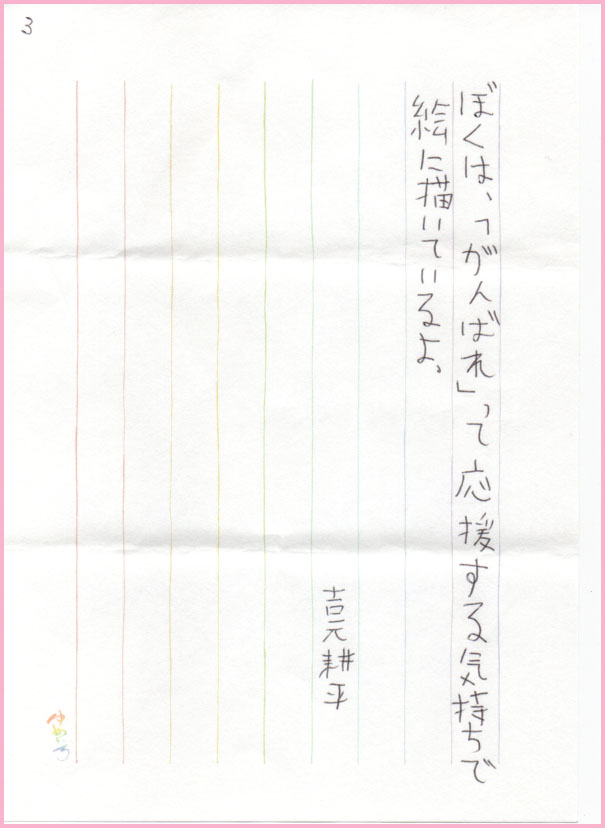 3
ぼくは、「がんばれ」って応援する気持ちで
絵に描いているよ。
吉元耕平